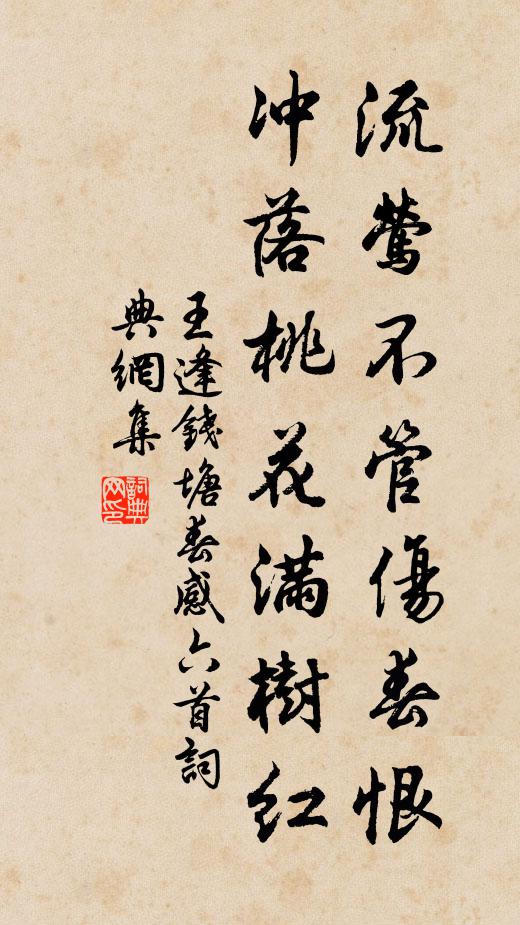 流鶯不管傷春恨
冲落桃花滿樹红
王逢錢塘春感六首詞
典網集
詞典
网印